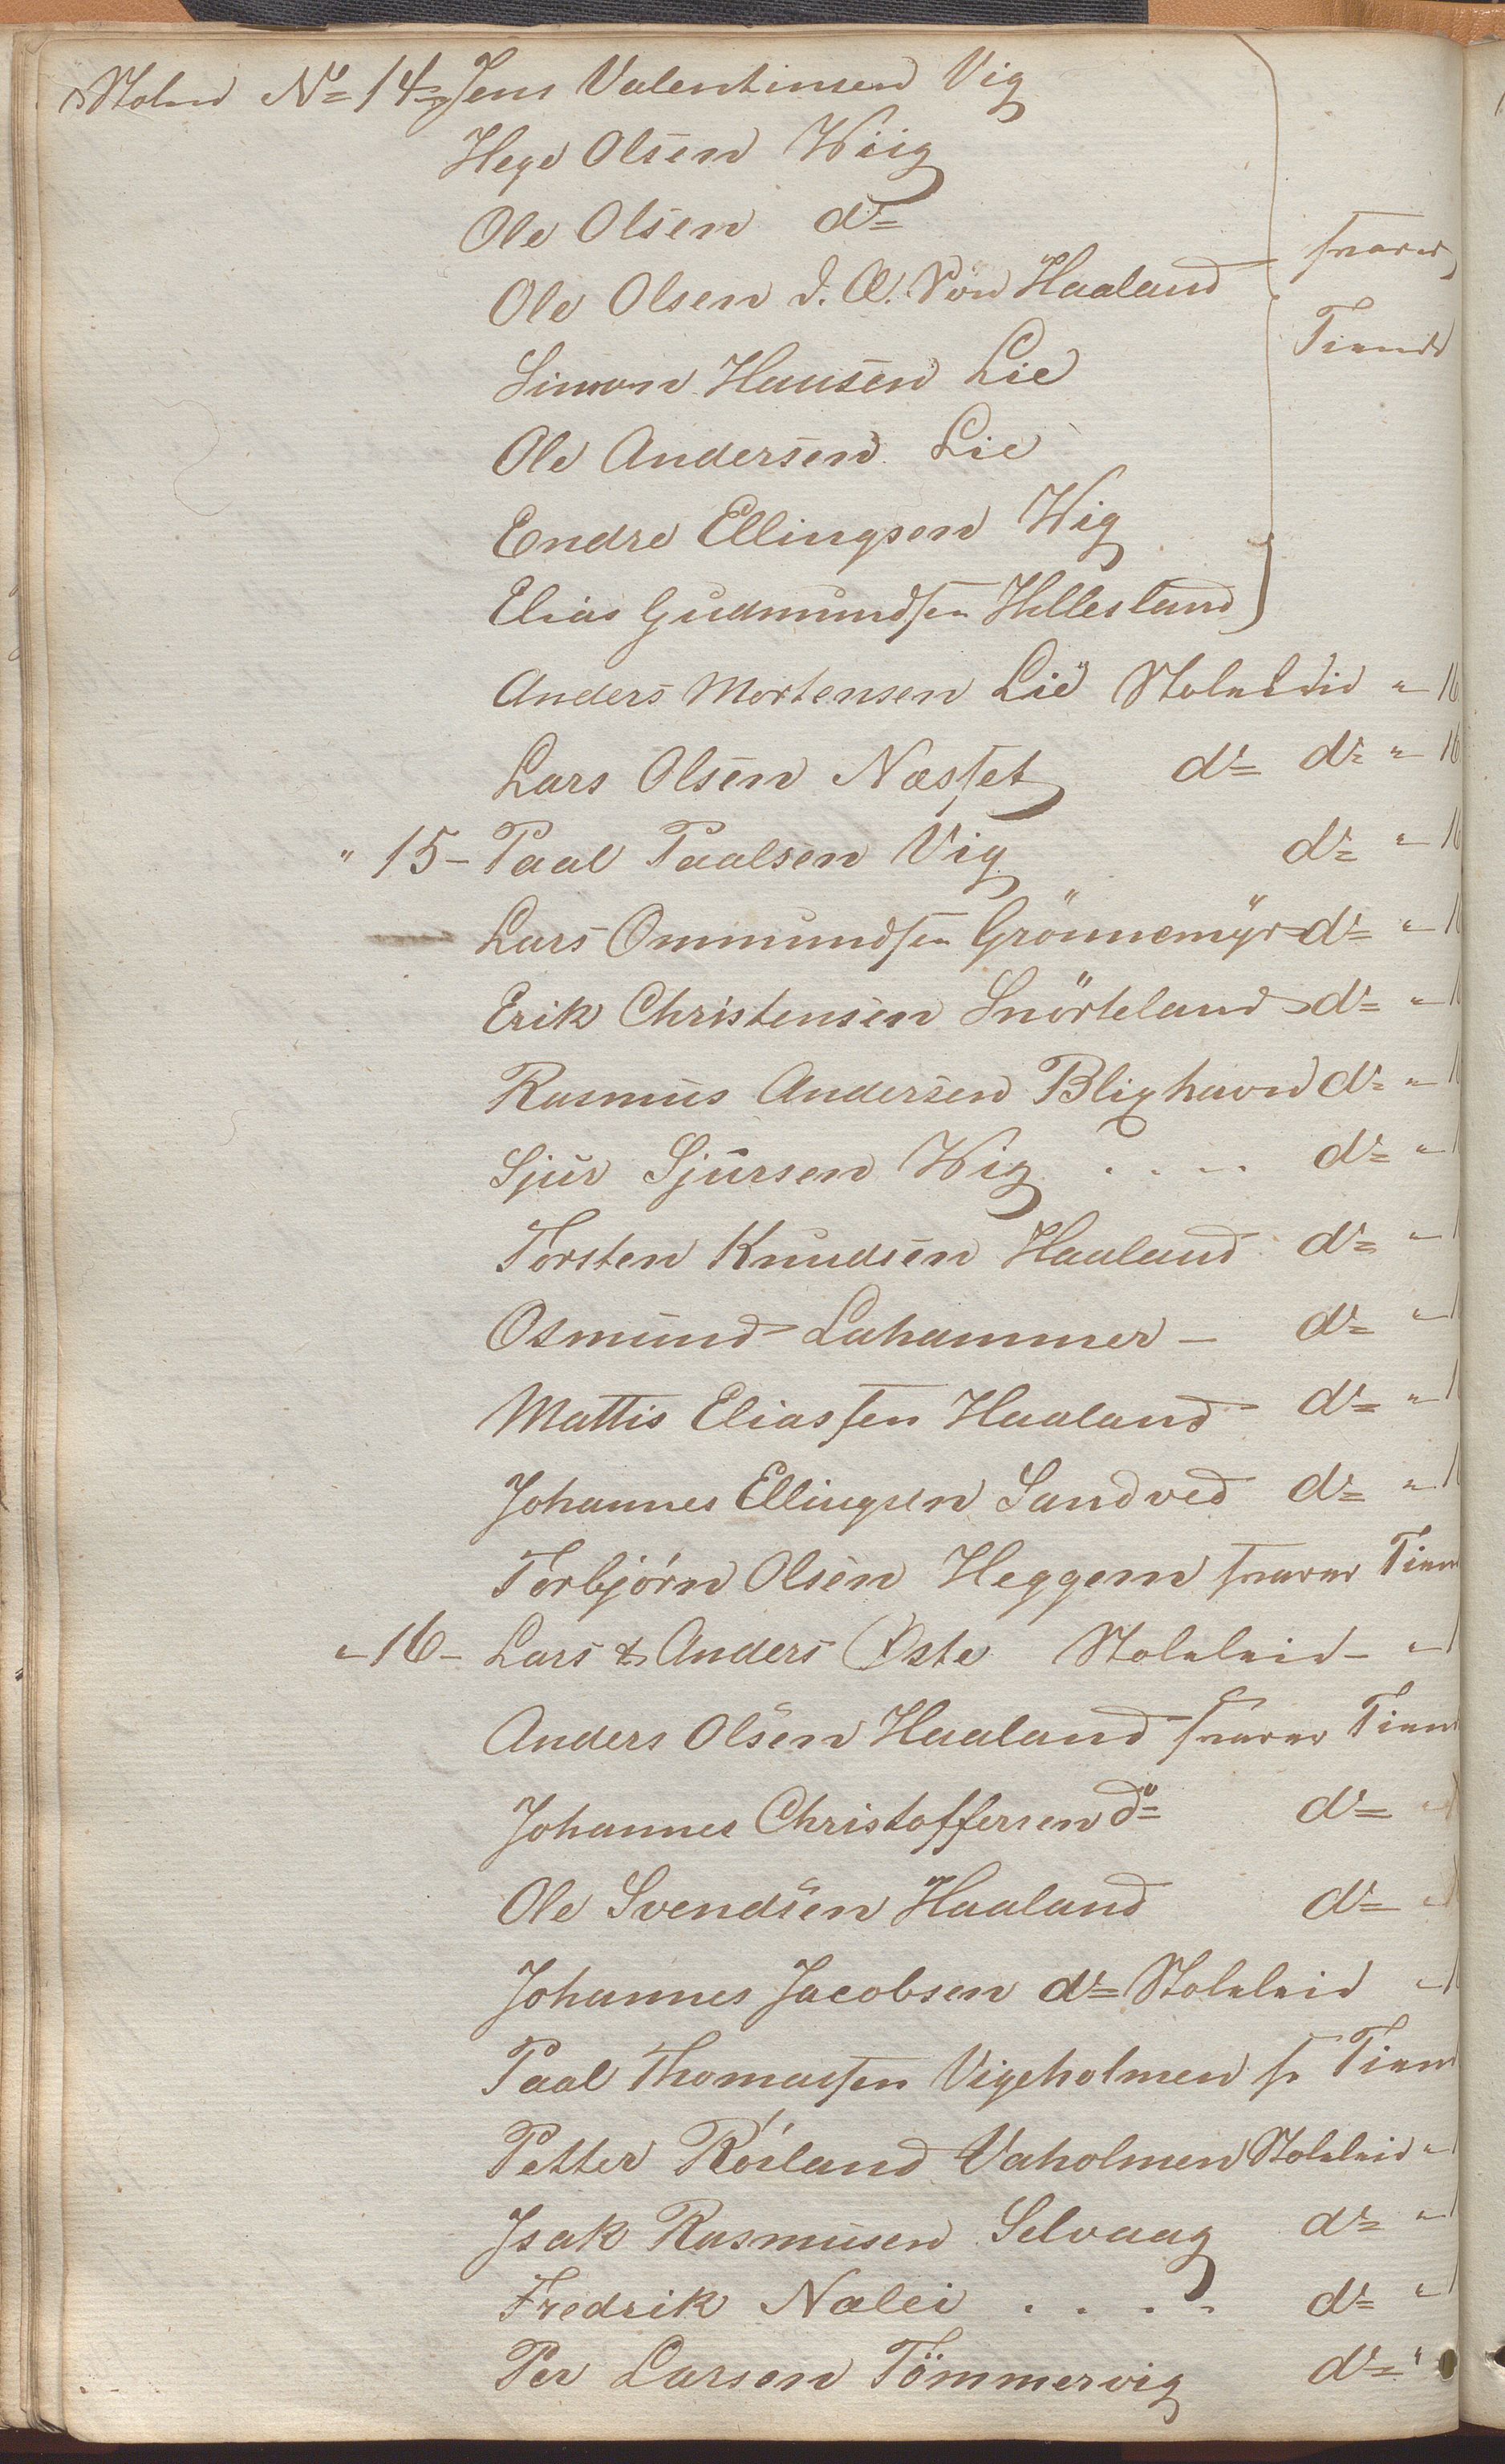 Stolen No 14 Jens Valentinsen Vig
Hege Olsen Wiig
Ole Olsen do
Ole Olsen d. Æ. Søn Haaland
svarer
Tiende
Simon Hansen Lie
Ole Andersen Lie
Endre Ellingsen Wig
Elias Gudmundsen Hillesland
Anders Mortensen Lie Stoleleie " 16
Lars Olsen Næsset do do " 16
" 15 - Paal Paalsen Vig do " 16
Lars Ommundsen Grönnemyr do " 1
Erik Christensen Snörteland do " 1
Rasmus Andersen Blighavn do " 1
Sjur Sjursen Wig . . . . do " 1
Torsten Knudsen Haaland do " 1
Osmund Lahammer - do " 1
Mattis Eliassen Haaland do " 1
Johannes Ellingsen Sandved do " 1
Torbjörn Olsen Heggem svarer Tien
" 16 - Lars & Anders Øste Stoleleie - " 1
Anders Olsen Haaland svarer Tien
Johannes Christoffersen do do
Ole Svendsen Haaland do
Johannes Jacobsen do Stoleleie " 1
Paal Thomassen Vigeholmen sv Tien
Petter Röiland Vaholmen Stoleleie " 1
Isak Rasmusen Selvaag do " 1
Fredrik Nalei . . . . do " 1
Per Larsen Tömmervig do "